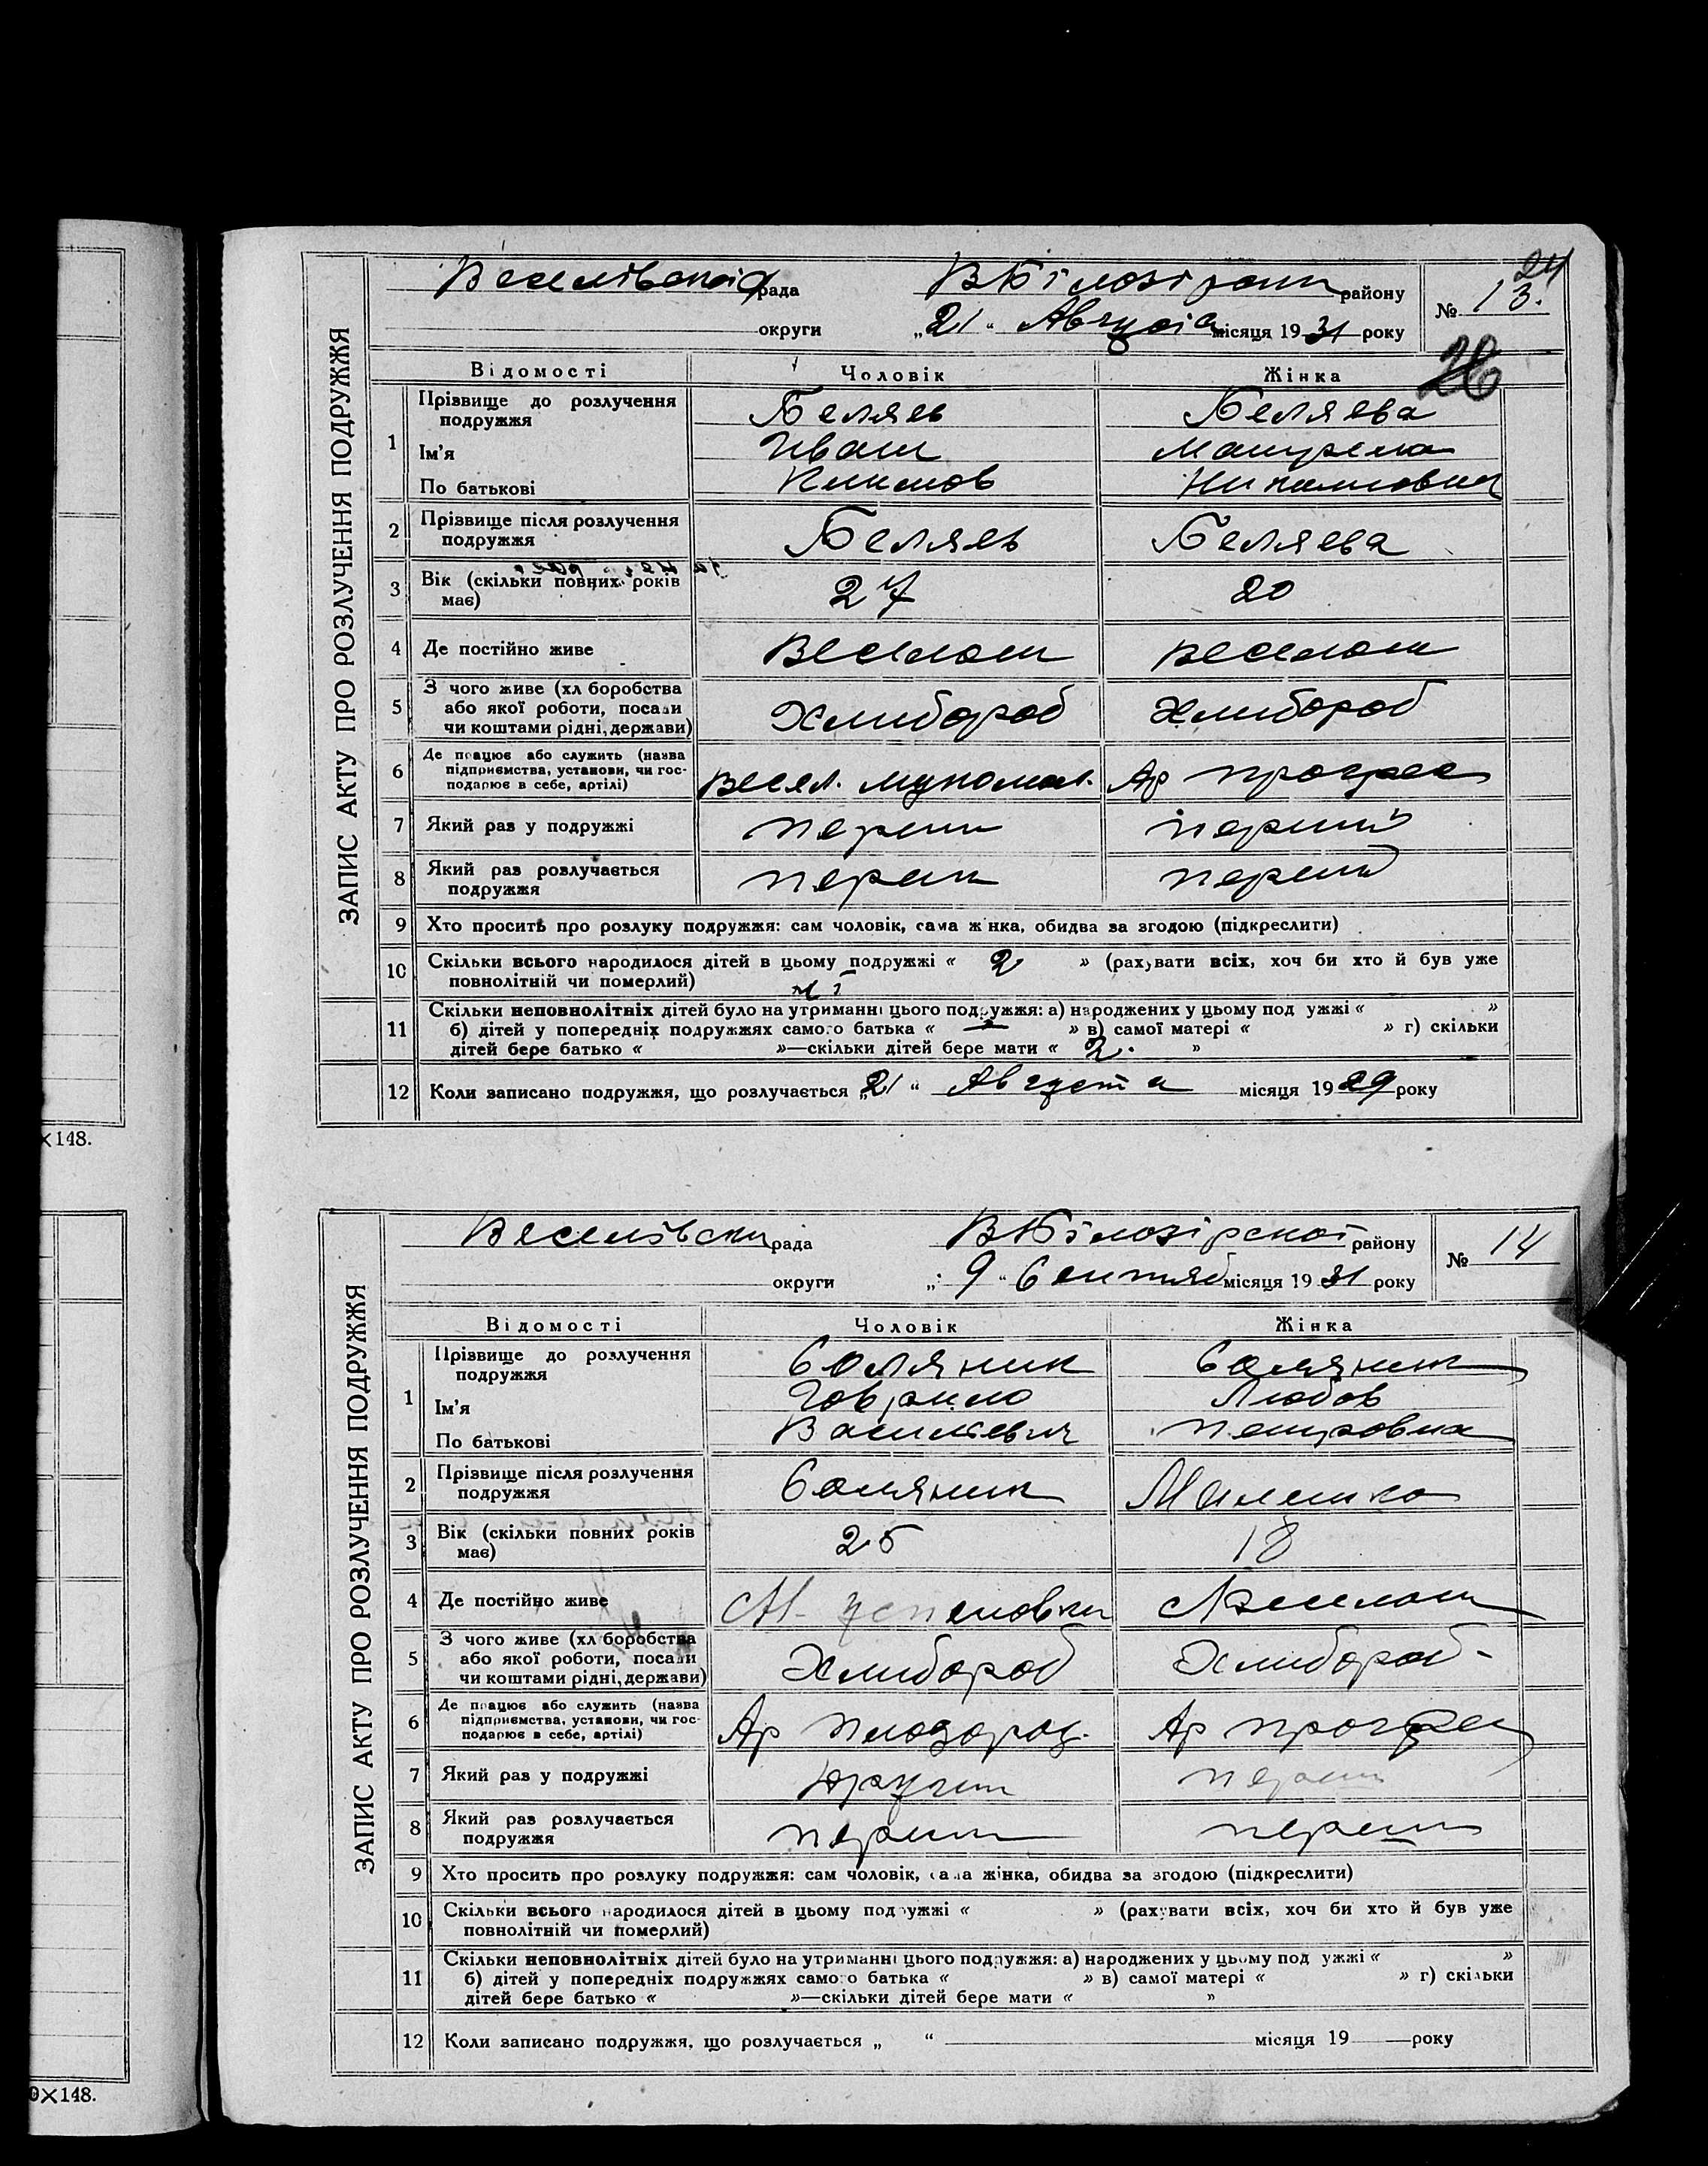 24
Веселівской рада В Білозірки району № 13.
округи „21“ Августа місяця 1931 року
26
ЗАПИС АКТУ ПРО РОЗЛУЧЕННЯ ПОДРУЖЖЯ
Відомості Чоловік Жінка
1 Прізвище до розлучення подружжя Беляев Беляева
Ім'я Иван
По батькові Климов
2 Прізвище після розлучення подружжя Беляев Беляева
3 Вік (скільки повних років має) 27 20
4 Де постійно живе Веселом Веселом
5 З чого живе (хліборобства або якої роботи, посади чи коштами рідні, держави) Хлибороб Хлибороб
6 Де працює або служить (назва підприємства, установи, чи господарює в себе, артілі) Весел. Ар прогрес
7 Який раз у подружжі перши перший
8 Який раз розлучається подружжя перши перший
9 Хто просить про розлуку подружжя: сам чоловік, сама жінка, обидва за згодою (підкреслити)
10 Скільки всього народилося дітей в цьому подружжі « 2 » (рахувати всіх, хоч би хто й був уже
повнолітній чи померлий)
11 Скільки неповнолітніх дітей було на утриманні цього подружжя: а) народжених у цьому подружжі « »
б) дітей у попередніх подружжях самого батька « — » в) самої матері « » г) скільки
дітей бере батько « »—скільки дітей бере мати « 2. »
12 Коли записано подружжя, що розлучається „21“ Августа місяця 1929 року
×148.
Веселівски рада В Білозірской району № 14
округи „9“ Сентяб місяця 1931 року
ЗАПИС АКТУ ПРО РОЗЛУЧЕННЯ ПОДРУЖЖЯ
Відомості Чоловік Жінка
1 Прізвище до розлучення подружжя Соляник Соляник
Ім'я Гаврило Любов
По батькові Василіевич Петровна
2 Прізвище після розлучення подружжя Соляник
3 Вік (скільки повних років має) 25 18
4 Де постійно живе М- Успеновки Веселом
5 З чого живе (хліборобства або якої роботи, посади чи коштами рідні, держави) Хлибороб Хлибороб-
6 Де працює або служить (назва підприємства, установи, чи господарює в себе, артілі) Ар Плодород. Ар прогрес
7 Який раз у подружжі други перши
8 Який раз розлучається подружжя перши перши
9 Хто просить про розлуку подружжя: сам чоловік, сама жінка, обидва за згодою (підкреслити)
10 Скільки всього народилося дітей в цьому подружжі « » (рахувати всіх, хоч би хто й був уже
повнолітній чи померлий)
11 Скільки неповнолітніх дітей було на утриманні цього подружжя: а) народжених у цьому подружжі « »
б) дітей у попередніх подружжях самого батька « » в) самої матері « » г) скільки
дітей бере батько « »—скільки дітей бере мати « »
12 Коли записано подружжя, що розлучається „ “ місяця 19 року
0×148.